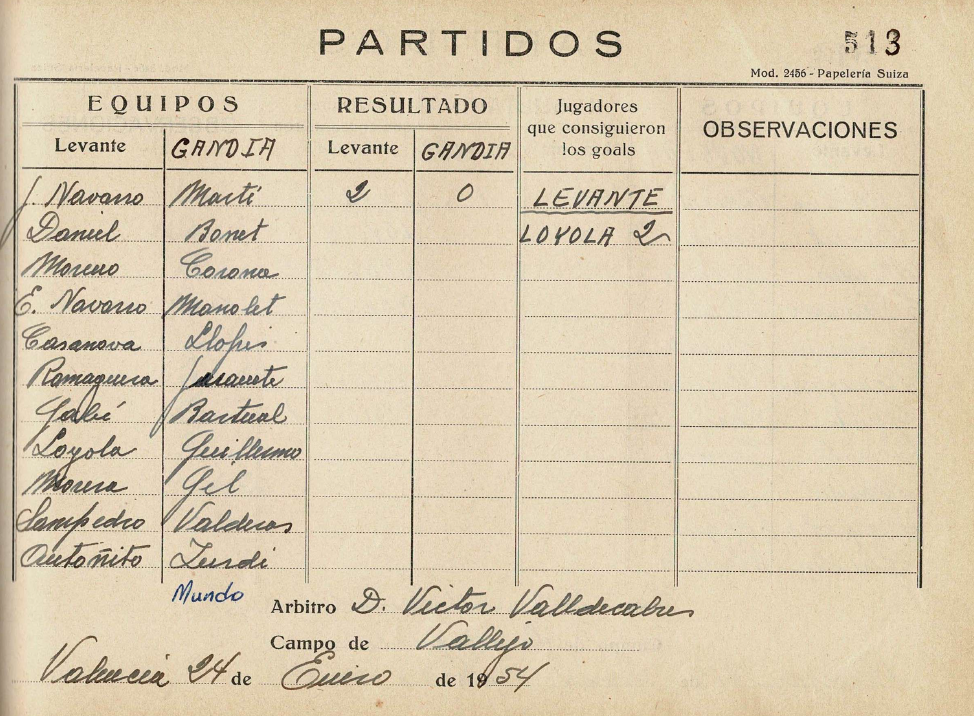 PARTIDOS 513
Mod. 2456 - Papelería Suiza
EQUIPOS RESULTADO Jugadores que consiguieron los goals OBSERVACIONES
Levante GANDIA Levante GANDIA
J. Navarro Martí 2 0 LEVANTE
Daniel Bonet LOYOLA 2
Moreno Corona
E. Navarro Manolet
Casanova Llopis
Romaguera
Gabí Bartual
Loyola Guillermo
Morera Gil
Sampedro Valderas
Antoñito Zurdi
Mundo
Arbitro D. Victor Valldecabres
Campo de Vallejo
Valencia 24 de Enero de 1954